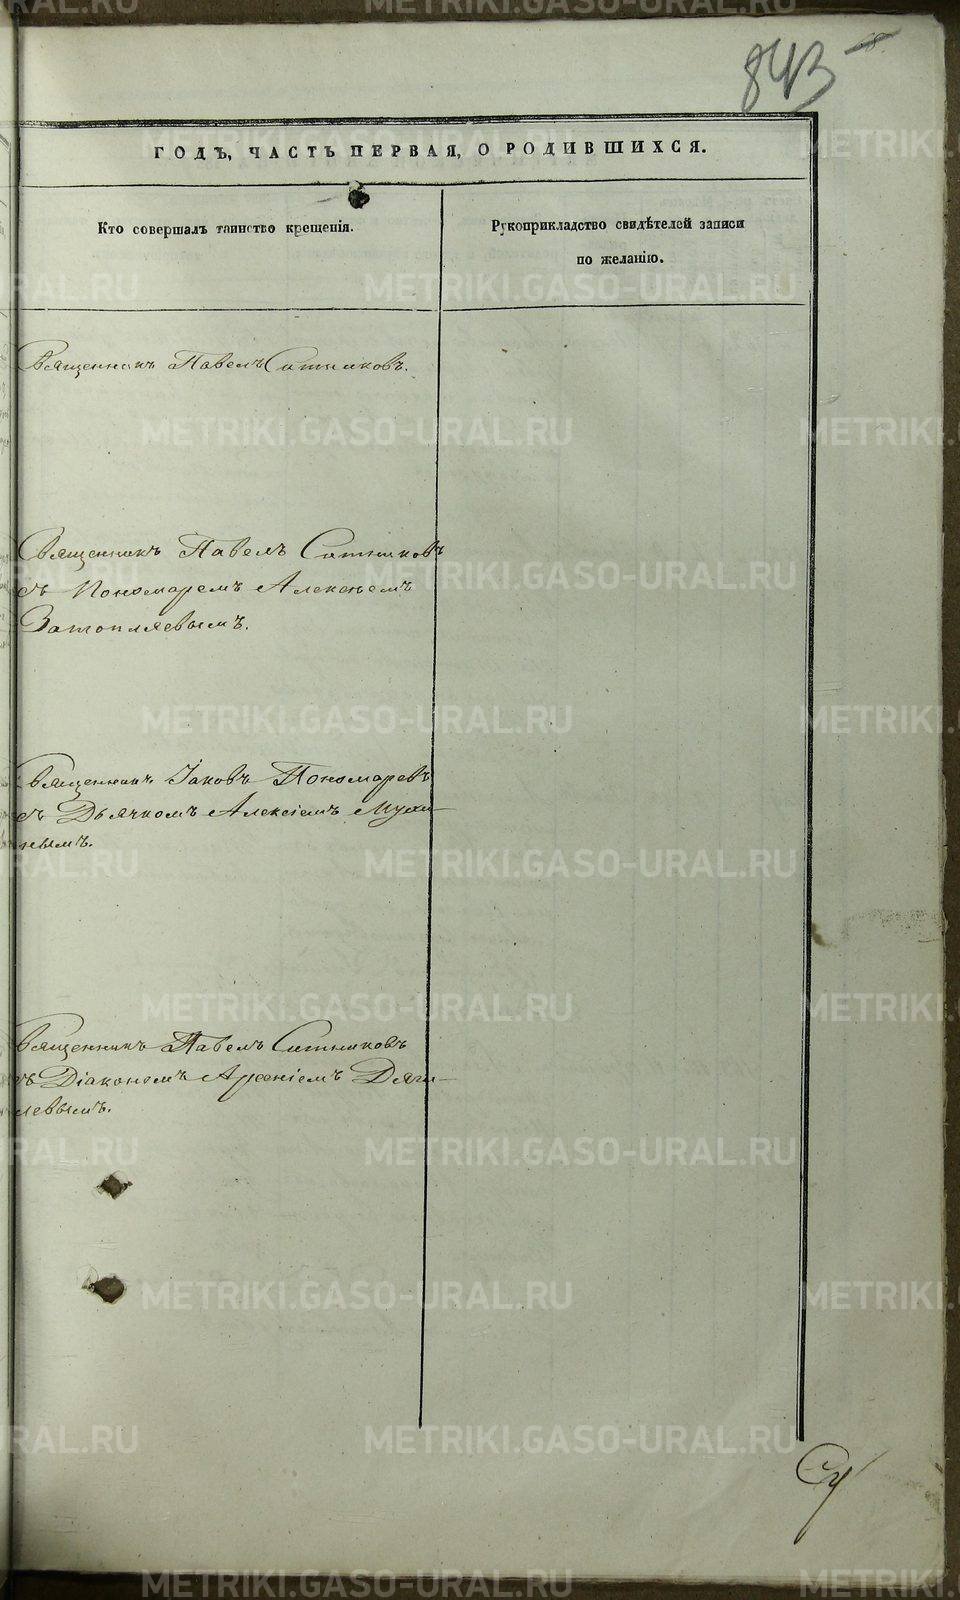 843
ГОДЪ, ЧАСТЬ ПЕРВАЯ, О РОДИВШИХСЯ.
Кто совершалъ таинство крещенія.
Рукоприкладство свидѣтелей записи
по желанію.
Священникъ Павелъ Ситниковъ.
Священникъ Павелъ Ситниковъ
съ Пономаремъ Алексѣемъ
Затопляевымъ.
Священникъ Іаковъ Пономаревъ
съ Дьячкомъ Алексіемъ Мухи-
нымъ.
Священникъ Павелъ Ситниковъ
съ Діакономъ Арсеніемъ Дяги-
левымъ.
METRIKI.GASO-URAL.RU